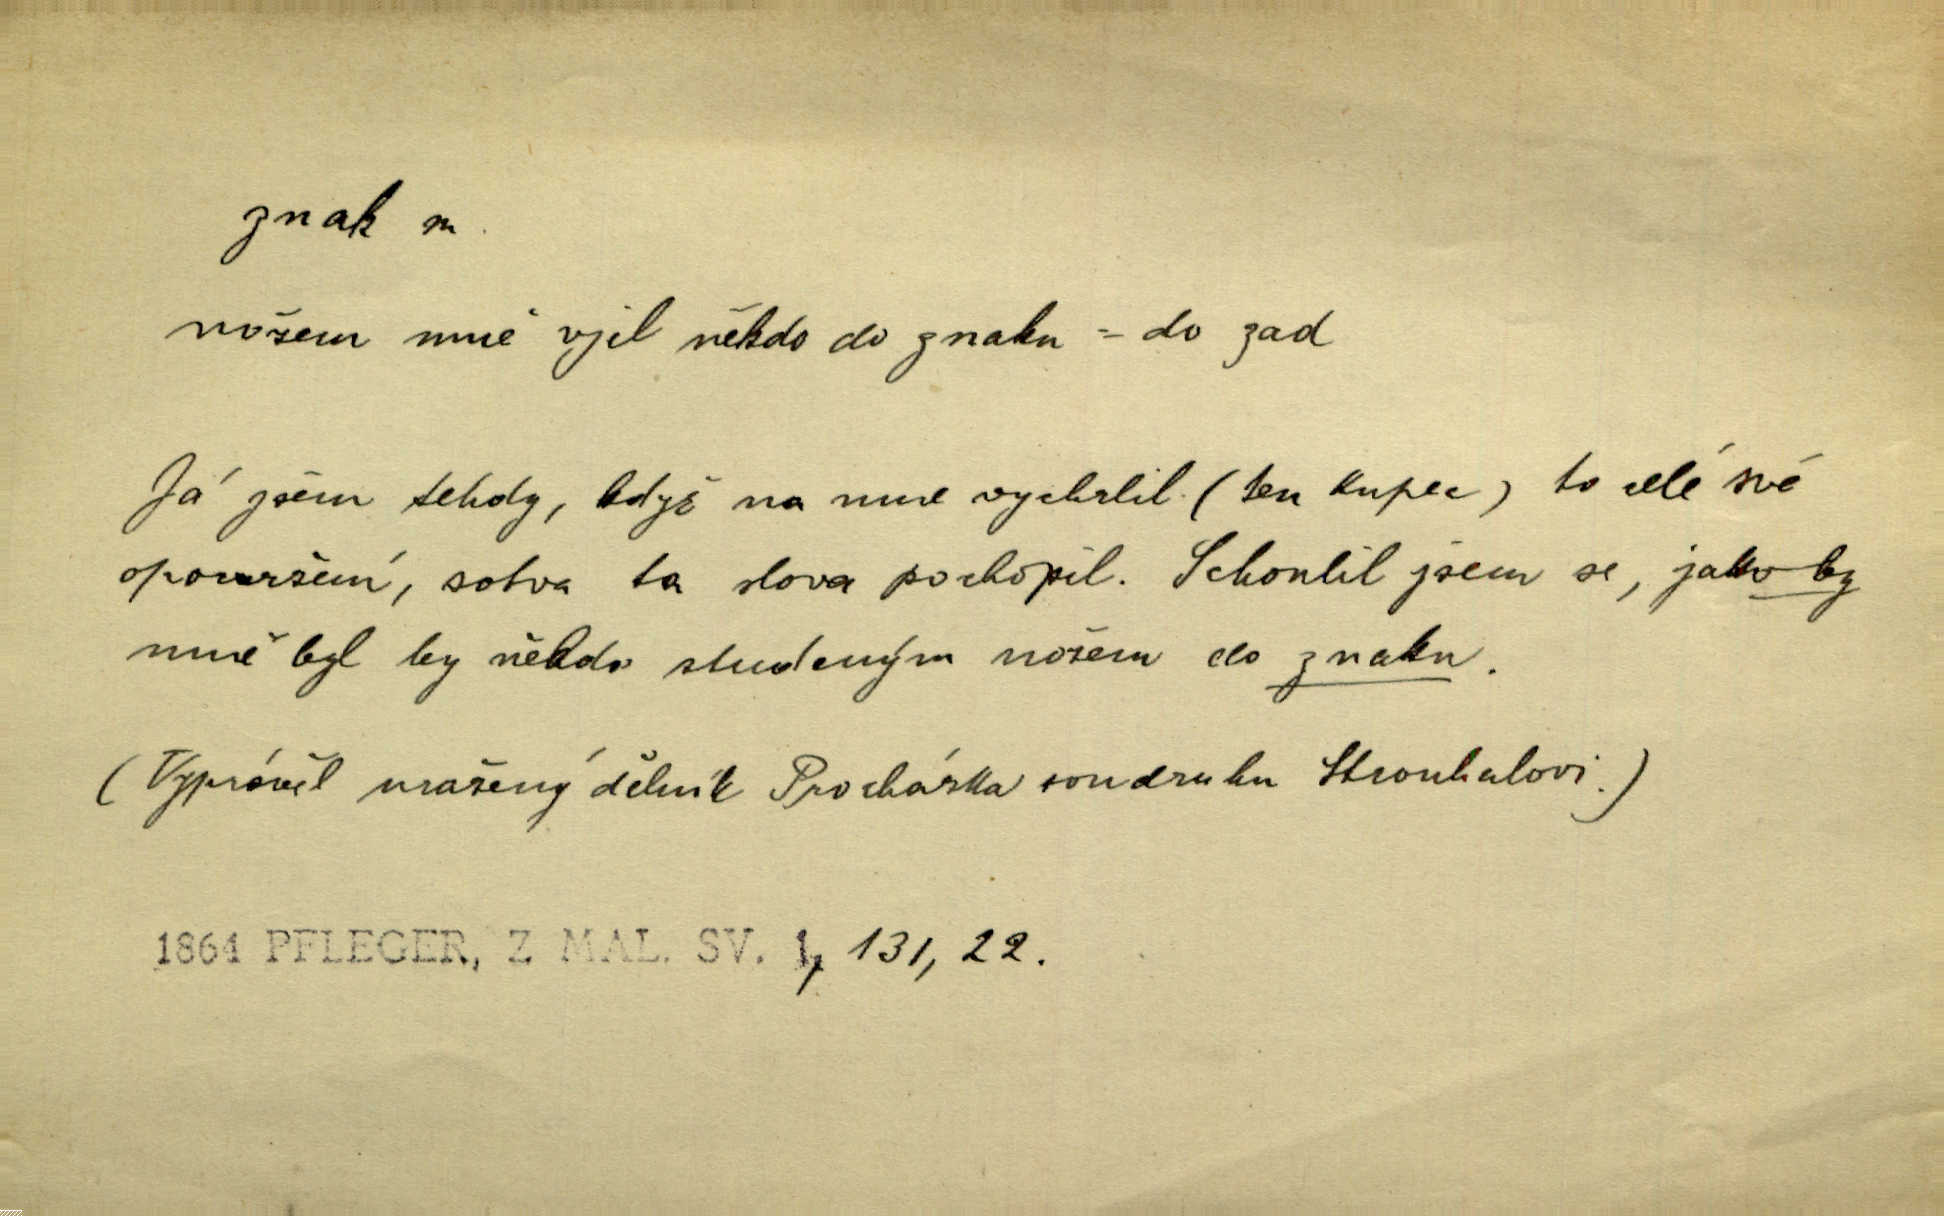 znak m.
nožem mně vjel někdo do znaku = do zad
Já jsem tehdy, když na mne vychrlil (ten kupec) to celé své
opovržení, sotva ta slova pochopil. Schoulil jsem se, jako by
mně byl by někdo studeným nožem do znaku.
(Vyprávěl uražený dělník Procházka soudruhu Strouhalovi.)
1864 PFLEGER, Z MAL. SV. 1, 131, 22.